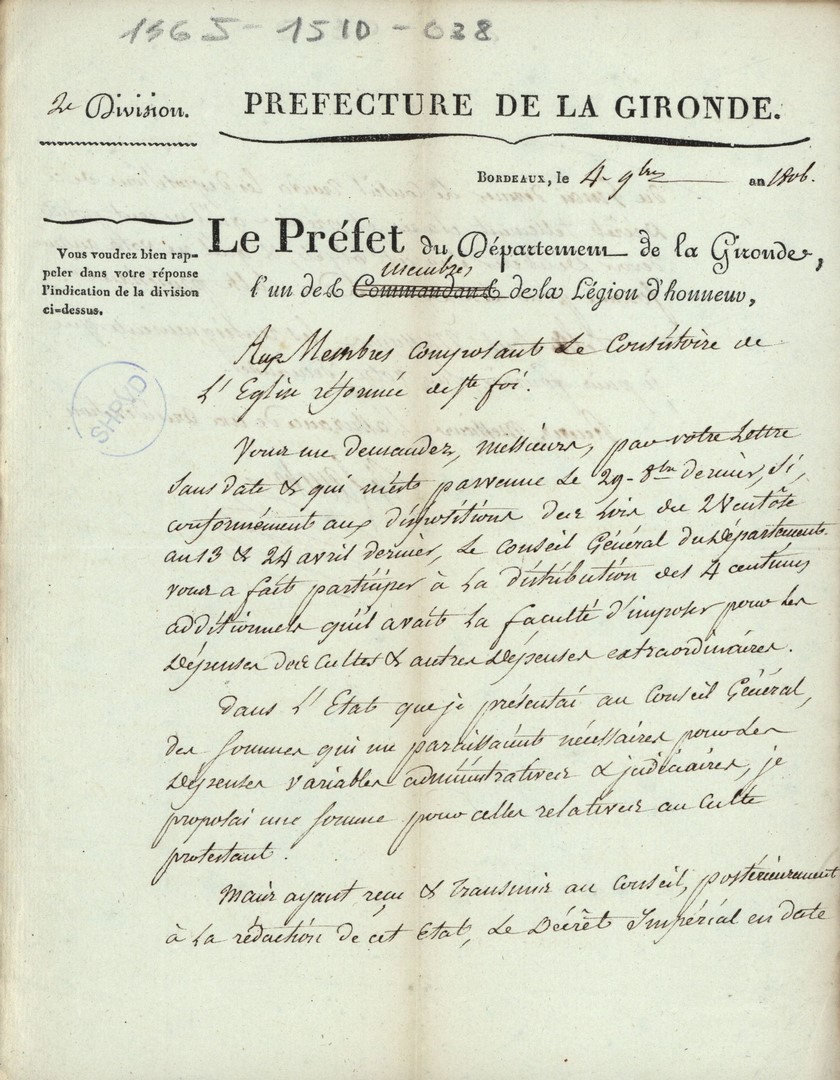 1365-1510-038
2e Division.
PREFECTURE DE LA GIRONDE.
BORDEAUX, le 4 9bre an 1806.
Vous voudrez bien rap-
peler dans votre réponse
l'indication de la division
ci-dessus.
Le Préfet du Département de la Gironde,
membres
l'un des Commandans de la Légion d'honneur,
Aux Membres composant Le Consistoire de
L'Eglise réformée de Ste foi.
SHPVD
Vous me demandez, messieurs, par votre Lettre
sans date & qui m'est parvenue Le 29 8bre dernier, si,
conformément aux dispositions des Lois du 2 Ventôse
an 13 & 24 avril dernier, Le Conseil Général du Département
vous a fait participer à La distribution des 4 centimes
additionnels qu'il avait La faculté d'imposer pour Les
Dépenses des Cultes & autres Dépenses extraordinaires.
Dans L'Etat que je présentai au Conseil Général,
des sommes qui me paraissaient nécessaires pour Les
Dépenses variables administratives & judiciaires, je
proposai une somme pour celles relatives au Culte
protestant.
Mais ayant reçu & transmis au Conseil, postérieurement
à La rédaction de cet Etat, Le Décrêt Impérial en date